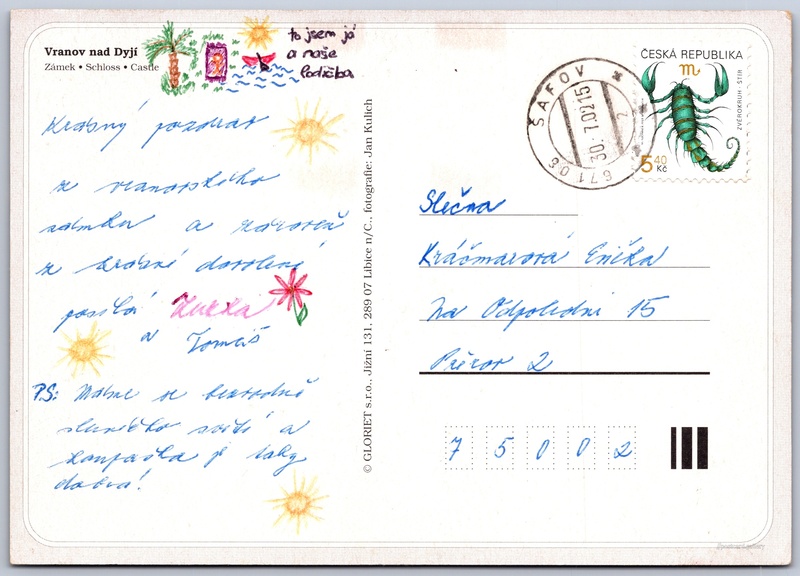 Vranov nad Dyjí
Zámek • Schloss • Castle
to jsem já
a naše
lodička
Krásný pozdrav
z vranovského
zámku a zároveň
z krásné dovolené
posílá Lucka
a Tomáš
P.S: Máme se bezvadně
sluníčko svítí a
koupačka je taky
dobrá!
© GLORIET s.r.o., Jižní 131, 289 07 Libice n/C., fotografie: Jan Kulich
ŠAFOV
30.7.02-15
671 06
2
ČESKÁ REPUBLIKA
ZVĚROKRUH - ŠTÍR
5 40
Kč
Slečna
Kráčmarová Erika
Na Odpoledni 15
Přerov 2
75002